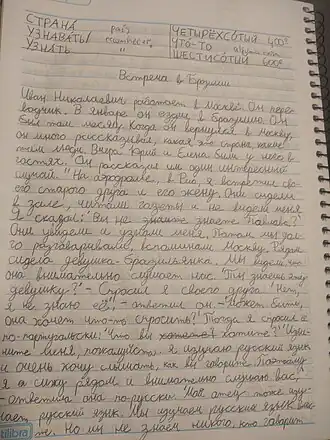 СТРАНА país ЧЕТЫРЁХСОТЫЙ 400º
УЗНАВАТЬ ЧТО-ТО
УЗНАТЬ " ШЕСТИСОТЫЙ 600º
Встреча в Бразилии
Иван Николаевич работает в Москве. Он пере-
водчик. В январе он ездил в Бразилию. Он
был там месяц. Когда он вернулся в Москву,
он много рассказывал, какая это страна, какие
там люди. Вчера Юрий и Елена были у него в
гостях. Он рассказал им один интересный
случай. "На аэродроме, в Рио, я встретил сво-
его старого друга и его жену. Они сидели
в зале, читали газеты и не видели меня
Я сказал: "Вы не знаете Павлова?"
Они увидели и узнали меня. Потом мы дол-
го разговаривали, вспоминали Москву. Рядом
сидела девушка-бразильянка. Мы видели, что
она внимательно слушает нас. "Ты знаешь эту
девушку?" - Спросил я своего друга "Нет,
я не знаю её", - ответил он. - "Может быть,
она хочет что-то спросить?" Тогда я спросил её
по-португальски: "Что вы хотите?" "Изви-
ните меня, пожалуйста. Я изучаю русский язык
и очень хочу слышать, как вы говорите. Поэтому
я сижу рядом и внимательно слушаю вас,"
- Ответила она по-русски. "Мой отец тоже изу-
чает русский язык. Мы изучаем русский язык
Но мы не знаем никого, кто говорит
tilibra